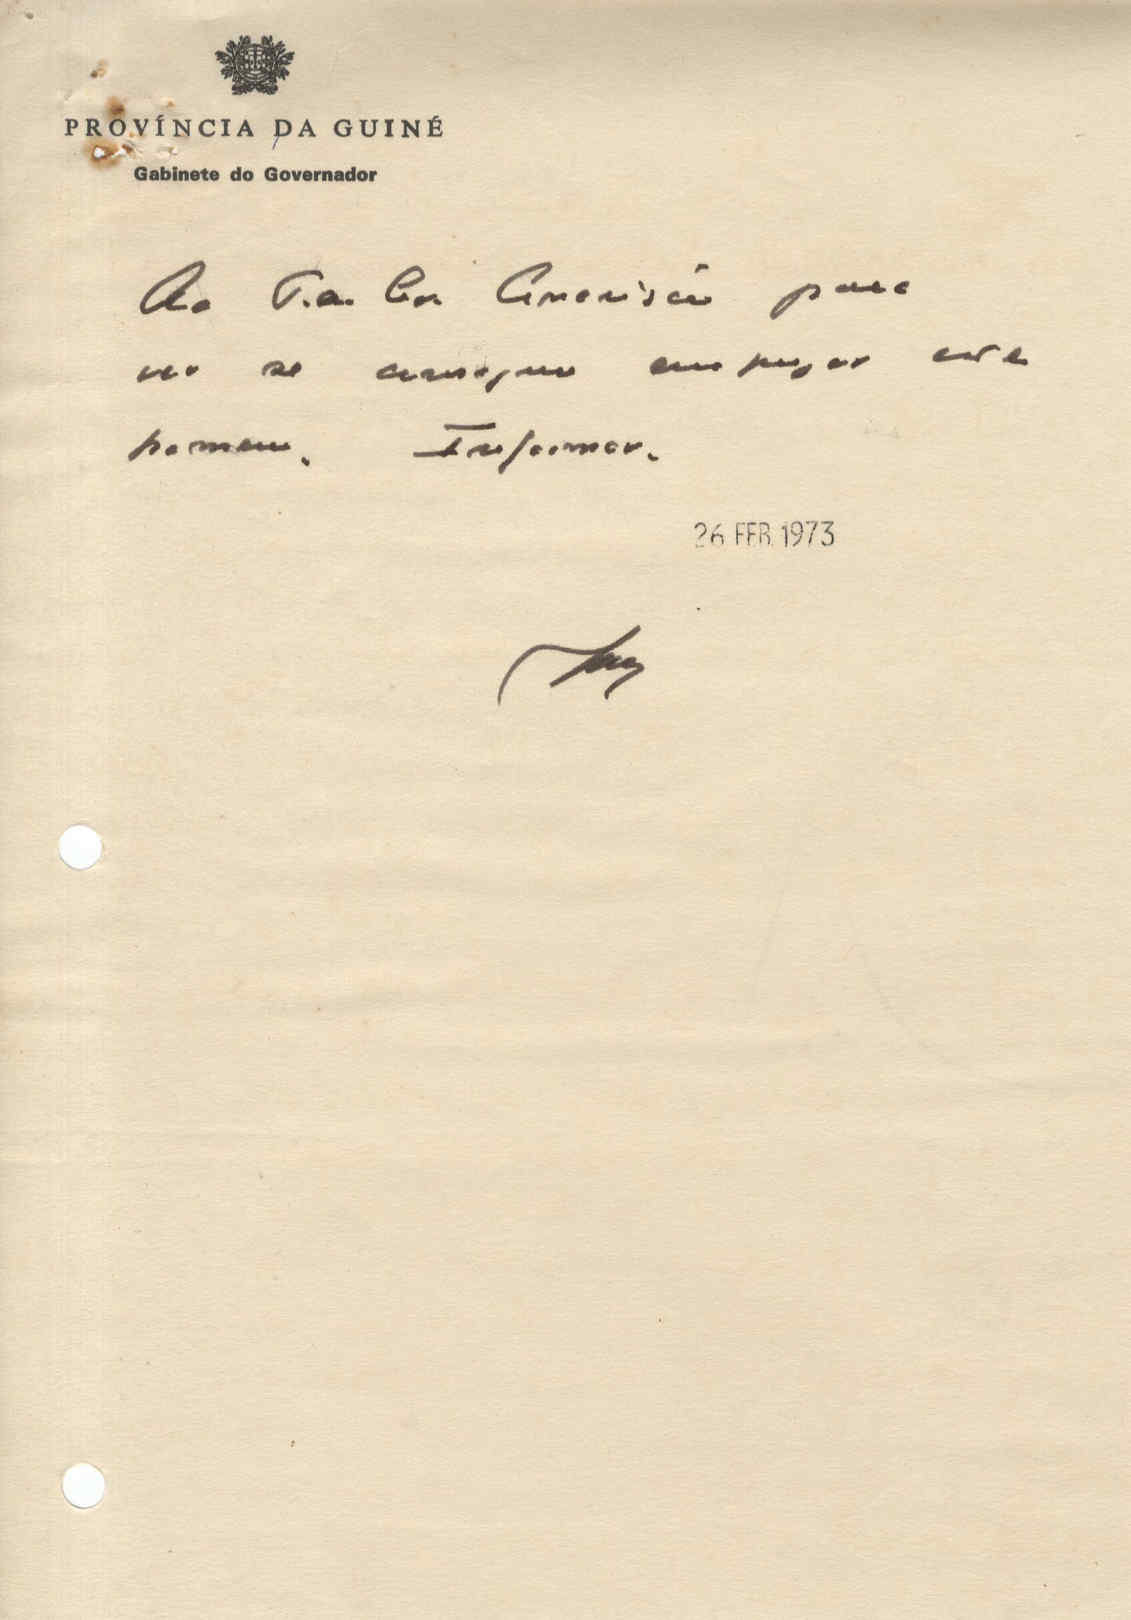 PROVÍNCIA DA GUINÉ
Gabinete do Governador
Ao para
ver se consegue empregar este
homem. Informar.
26 FEB. 1973